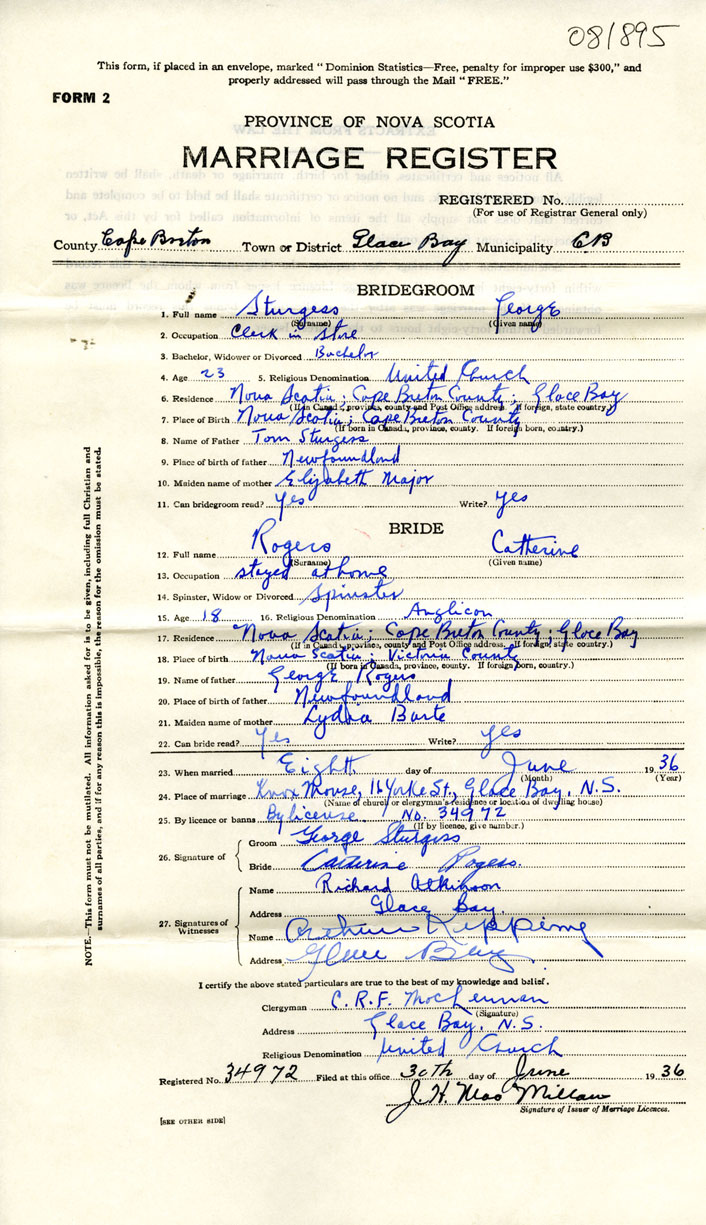 081895
This form, if placed in an envelope, marked "Dominion Statistics—Free, penalty for improper use $300," and
properly addressed will pass through the Mail "FREE."
FORM 2
PROVINCE OF NOVA SCOTIA
MARRIAGE REGISTER
REGISTERED No.
(For use of Registrar General only)
County Cape Breton Town or District Glace Bay Municipality C B
BRIDEGROOM
1. Full name Sturgess George
(Surname) (Given name)
2. Occupation Clerk in store
3. Bachelor, Widower or Divorced Bachelor
4. Age 23 5. Religious Denomination United Church
6. Residence Nova Scotia; Cape Breton County; Glace Bay
(If in Canada, province, county and Post Office address. If foreign, state country.)
7. Place of Birth Nova Scotia; Cape Breton County
(If born in Canada, province, county. If foreign born, country.)
8. Name of Father Tom Sturgess
9. Place of birth of father Newfoundland
10. Maiden name of mother Elizabeth Major
11. Can bridegroom read? Yes Write? Yes
BRIDE
12. Full name Rogers Catherine
(Surname) (Given name)
13. Occupation stayed at home
14. Spinster, Widow or Divorced Spinster
15. Age 18 16. Religious Denomination Anglican
17. Residence Nova Scotia; Cape Breton County; Glace Bay
(If in Canada, province, county and Post Office address. If foreign, state country.)
18. Place of birth Nova Scotia; Victoria County
(If born in Canada, province, county. If foreign born, country.)
19. Name of father George Rogers
20. Place of birth of father Newfoundland
21. Maiden name of mother Lydia
22. Can bride read? Yes Write? Yes
23. When married Eighth day of June 1936
(Month) (Year)
24. Place of marriage Knox Manse, 16 Yorke St., Glace Bay, N.S.
(Name of church or clergyman's residence or location of dwelling house)
25. By licence or banns By license No. 34972
(If by licence, give number.)
26. Signature of
Groom George Sturgess
Bride Catherine Rogers.
27. Signatures of Witnesses
Name Richard Atkinson
Address Glace Bay
Name Arthur Kipping
Address Glace Bay
I certify the above stated particulars are true to the best of my knowledge and belief.
Clergyman C. R. F. MacLennan
(Signature)
Address Glace Bay, N.S.
Religious Denomination United Church
Registered No. 34972 Filed at this office 30th day of June 1936
J. H. MacMillan
Signature of Issuer of Marriage Licences.
[SEE OTHER SIDE]
NOTE.—This form must not be mutilated. All information asked for is to be given, including full Christian and
surnames of all parties, and if for any reason this is impossible, the reason for the omission must be stated.